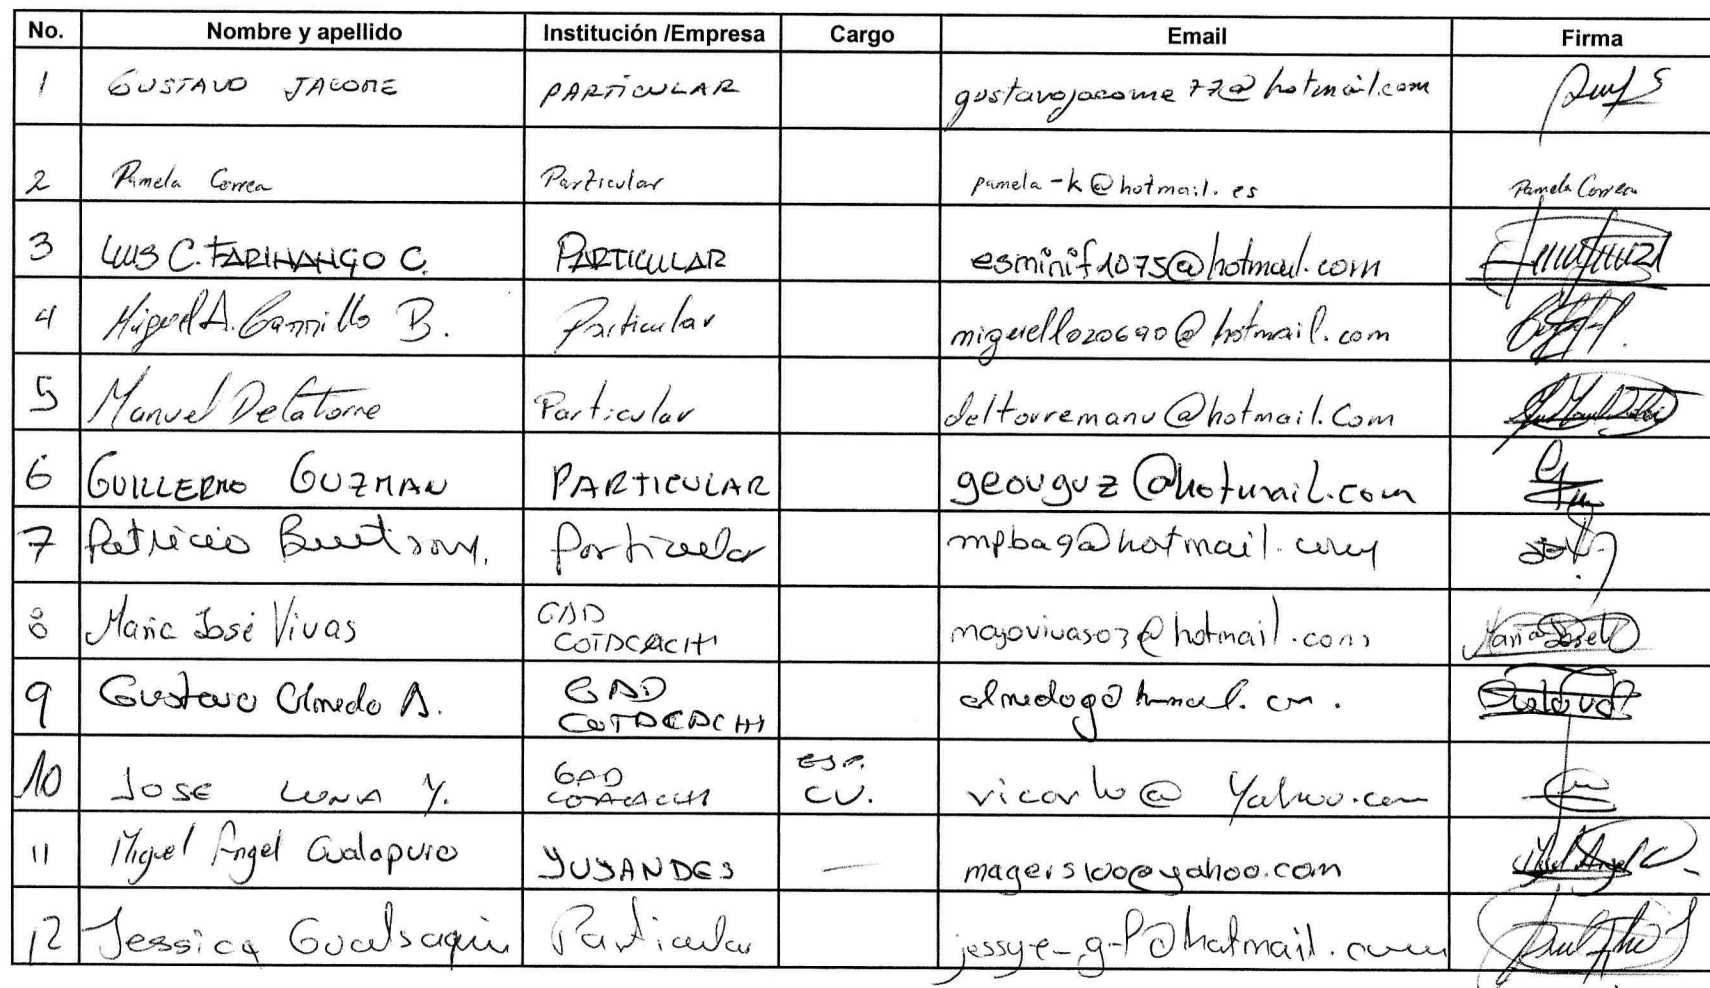 No. Nombre y apellido Institución /Empresa Cargo Email Firma
1 GUSTAVO JACOME PARTICULAR gustavojacome77@hotmail.com
2 Pamela Correa Particular pamela-k@hotmail.es Pamela Correa
3 LUIS C. FARINANGO C. PARTICULAR esminif1075@hotmail.com
4 Miguel A. Carrillo B. Particular miguell020690@hotmail.com
5 Manuel Delatorre Particular deltorremanu@hotmail.Com
6 GUILLERMO GUZMAN PARTICULAR geovguz@hotmail.com
7 Patricio Particular mpba9@hotmail.com
8 Maria José Vivas GAD COTACACHI majovivas03@hotmail.com Maria José
9 Gustavo Olmedo A. GAD COTACACHI
10 JOSE LUNA Y. GAD COTACACHI ESP. CV. @Yahoo.com
11 Miguel Angel Gualapuro YUYANDES — magers100@yahoo.com
12 Jessica Gualsaquí Particular jessye_g-P@hotmail.com